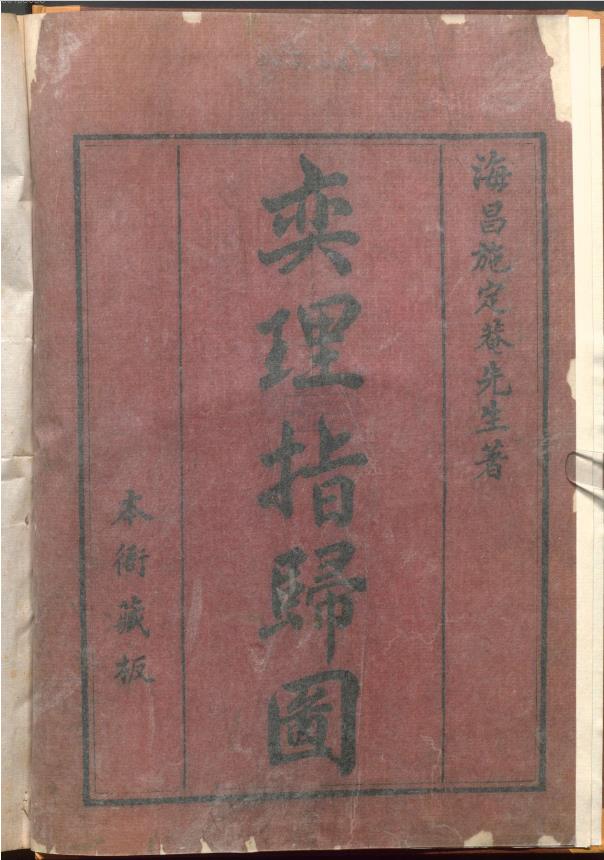 海昌施定菴先生著
奕理指歸圖
本衙藏板